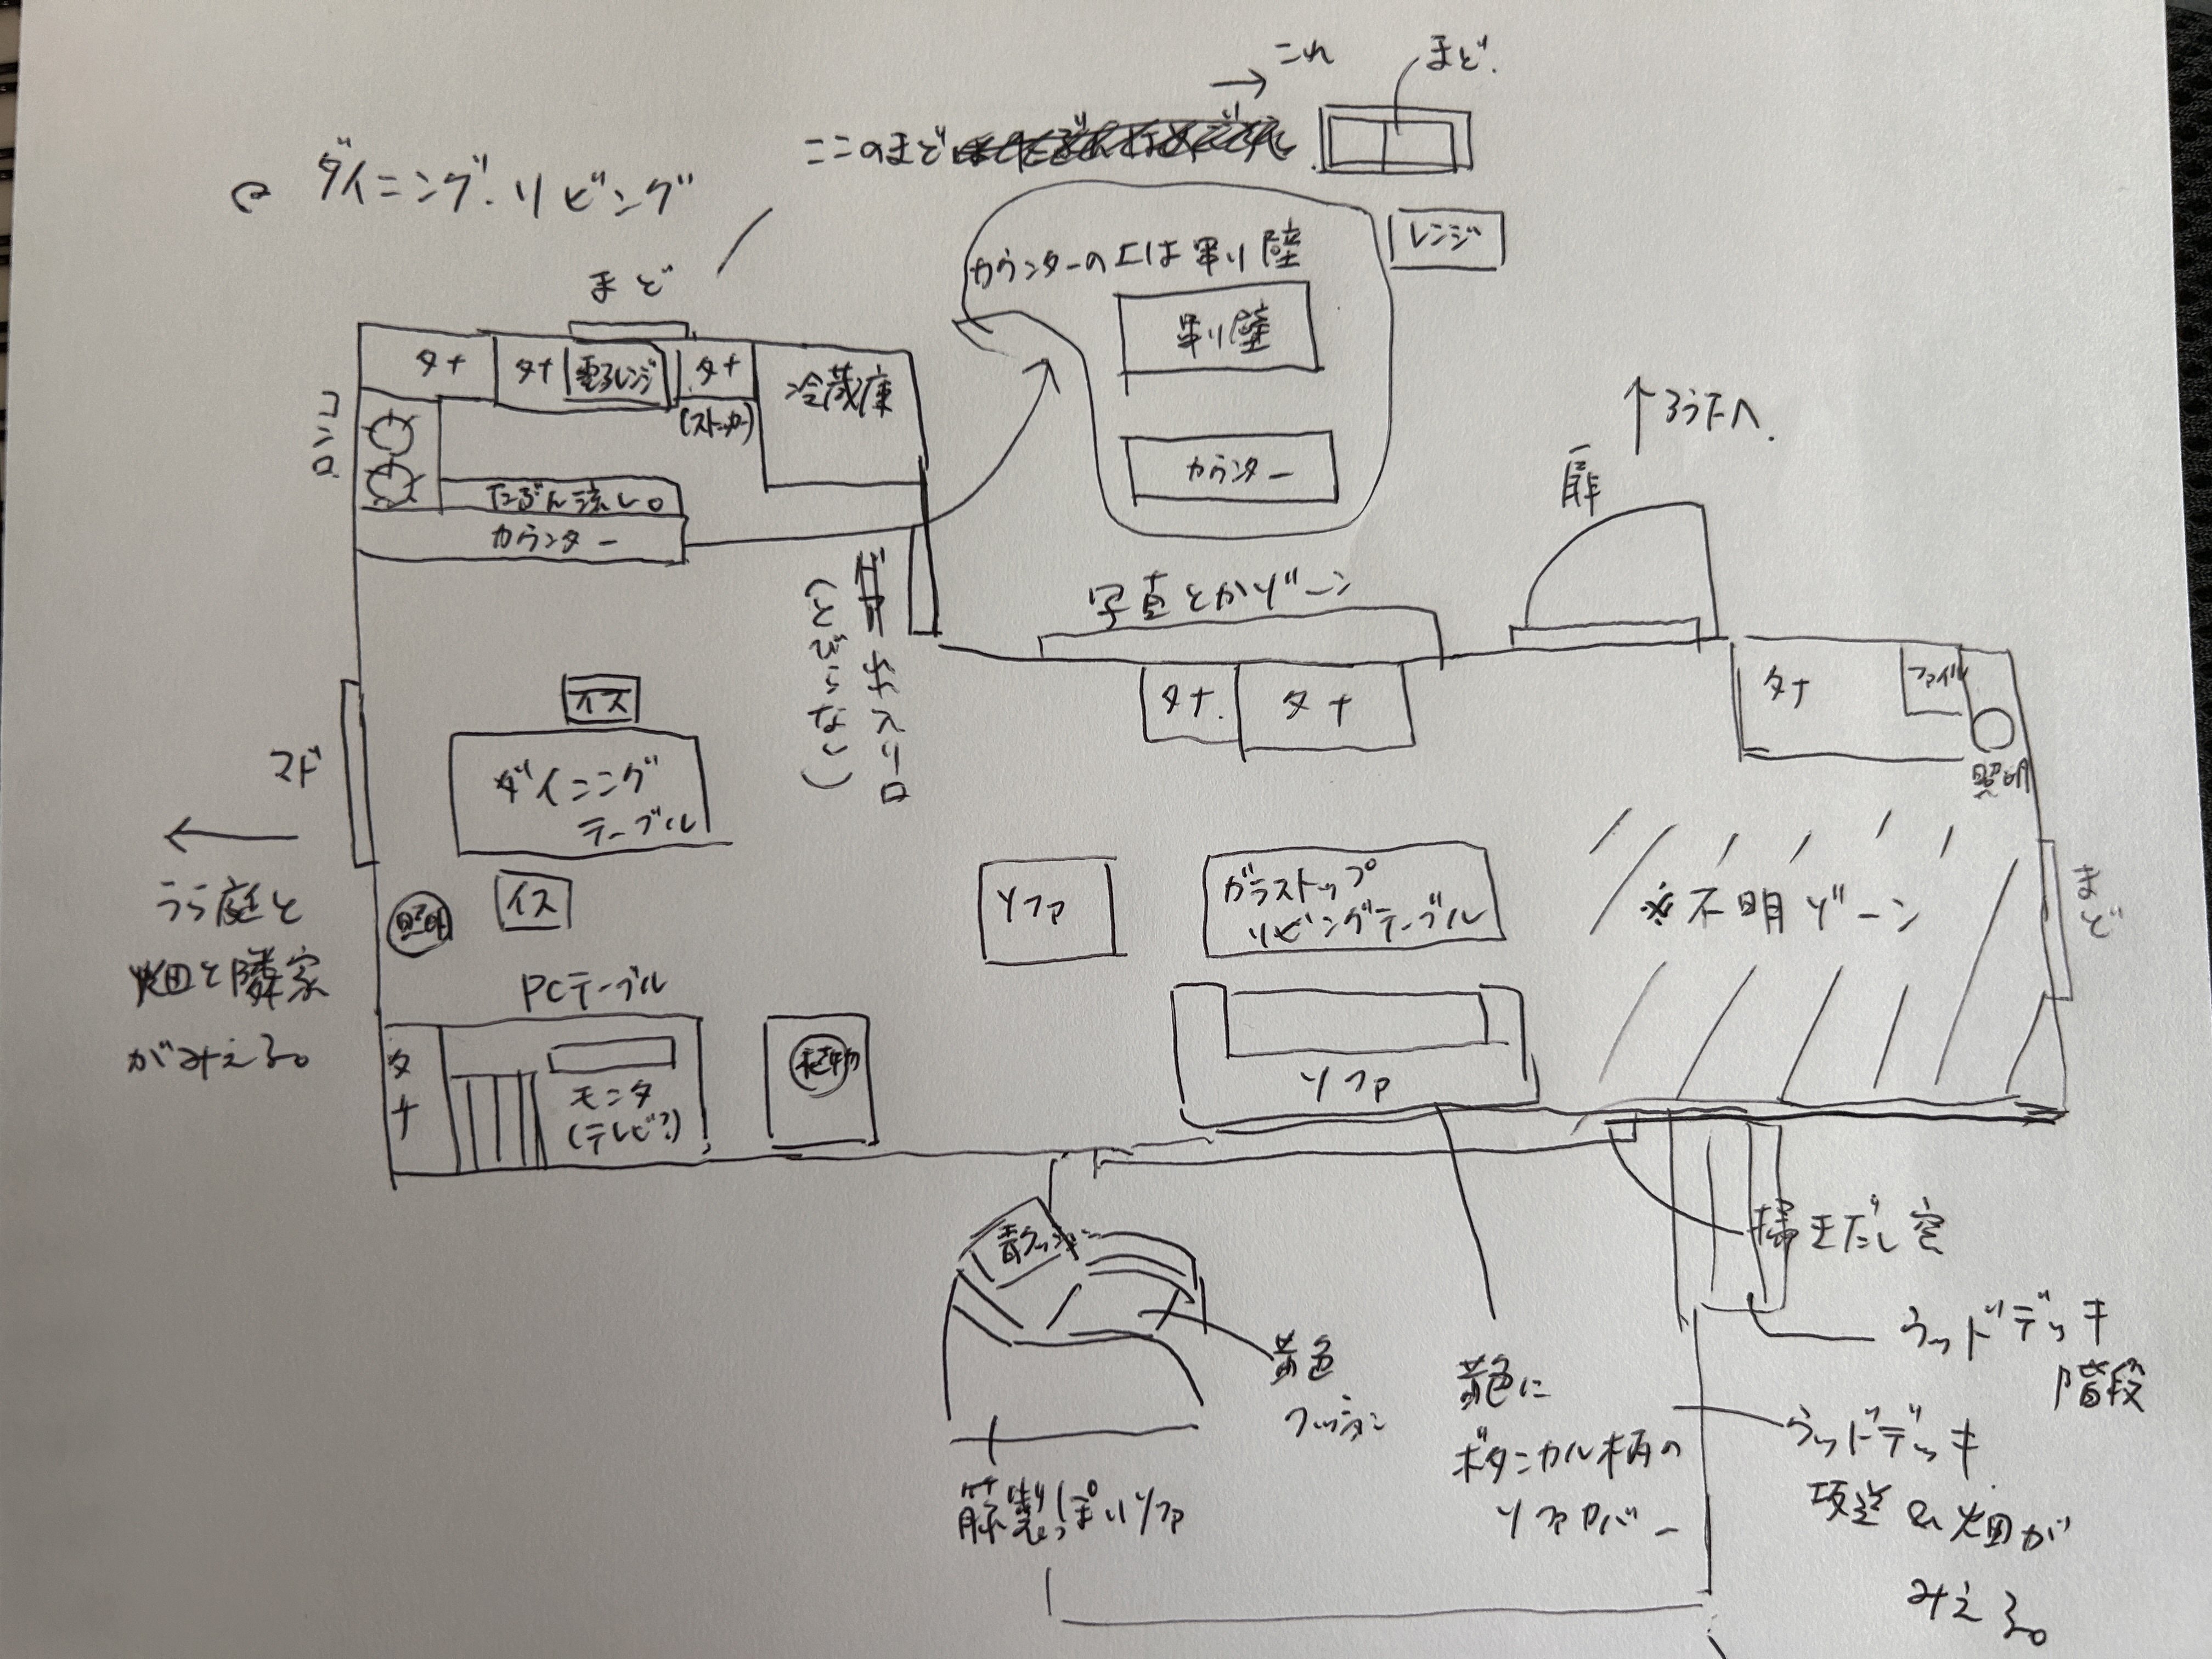 これ
まど.
ここのまど
ダイニング・リビング
レンジ
カウンターの上は吊り壁
吊り壁
カウンター
まど
タナ
タナ
電子レンジ
タナ
(ストッカー)
冷蔵庫
コンロ
たぶん流し。
カウンター
↑ろう下へ.
扉
出入り口
(とびらなし)
写真とかゾーン
タナ.
タナ
タナ
ファイル
照明
イス
ダイニング
テーブル
マド
←
うら庭と
畑と隣家
がみえる。
照明
イス
ソファ
ガラストップ
リビングテーブル
※不明ゾーン
まど
PCテーブル
タナ
モニタ
(テレビ?)
植物
ソファ
青クッション
黄色
クッション
籐製っぽいソファ
黄色に
ボタニカル柄の
ソファカバー
掃きだし窓
ウッドデッキ
階段
ウッドデッキ
坂道&畑が
みえる。